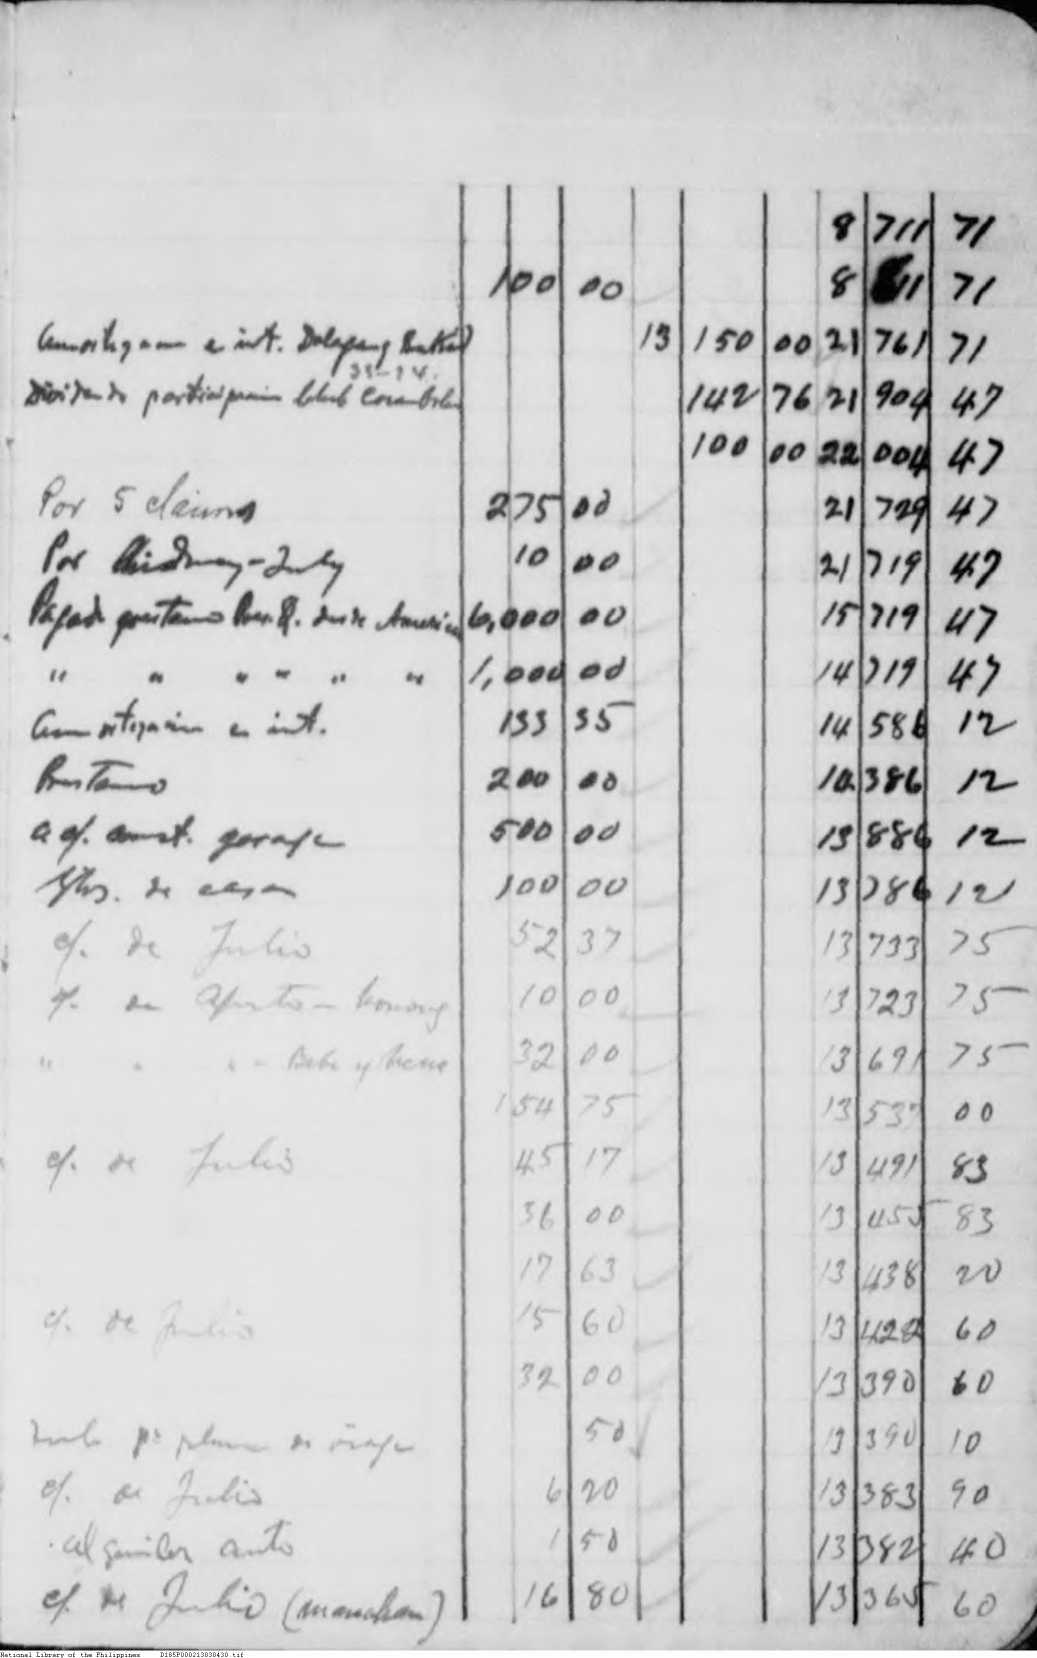 8 711 71
100 00 8 611 71
Amortizacion e int. Dalupang 13 150 00 21 761 71
33-34.
Dividendo participacion Club 142 76 21 904 47
100 00 22 004 47
Por 5 claims 275 00 21 729 47
Por -July 10 00 21 719 47
Pagado prestamo Pres. Q. desde America 6,000 00 15 719 47
" " " " " " 1,000 00 14 719 47
Amortizacion e int. 133 35 14 586 12
Prestamo 200 00 14 386 12
a cf. const. garage 500 00 13 886 12
Gtos. de casa 100 00 13 786 12
cf. de Julio 52 37 13 733 75
cf. de Agosto - 10 00 13 723 75
" " " - Bebe y Nene 32 00 13 691 75
154 75 13 537 00
cf. de Julio 45 17 13 491 83
36 00 13 455 83
17 63 13 438 20
cf. de Julio 15 60 13 422 60
32 00 13 390 60
50 13 390 10
cf. de Julio 6 20 13 383 90
alquiler auto 1 50 13 382 40
cf. de Julio (manaham) 16 80 13 365 60
National Library of the Philippines D185P000213838430.tif